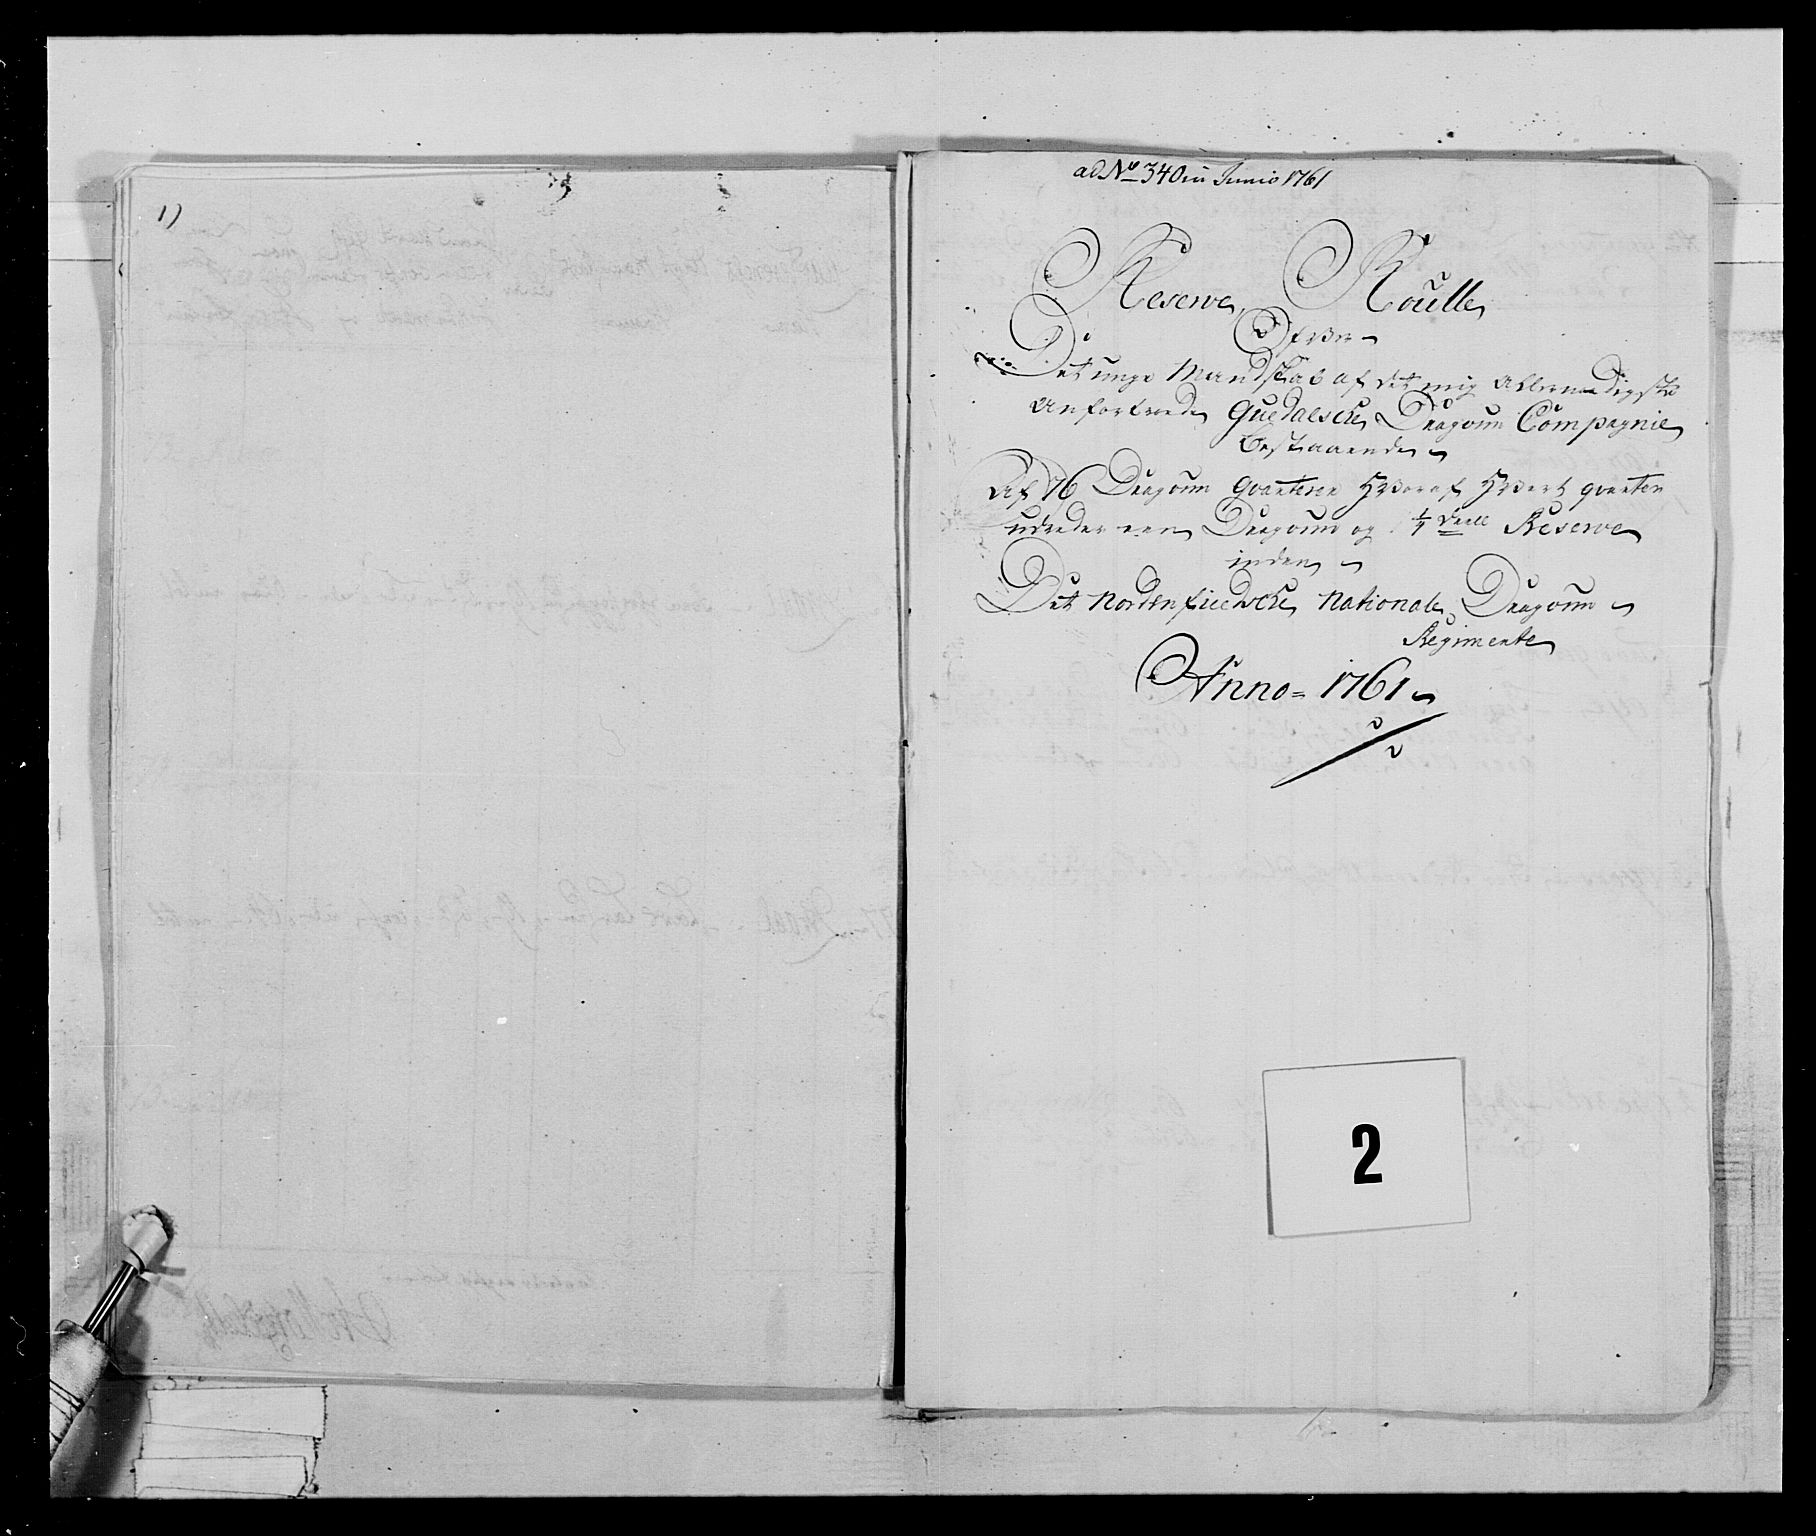 1)
ad No 340 in Junio 1761
Reserve Roulle
Ofver
Det unge Mandskab af det mig Allernaadigste
Anfortroede Guedalsche Dragoun Compagnie
bestaaende
Af 76 Dragoun qvarterer Hvoraf Hvert qvarter
udreder een Dragoun og 1/4 deell Reserve
inden
Det Nordenfieldsche Nationale Dragoun
Regimente
Anno = 1761
2